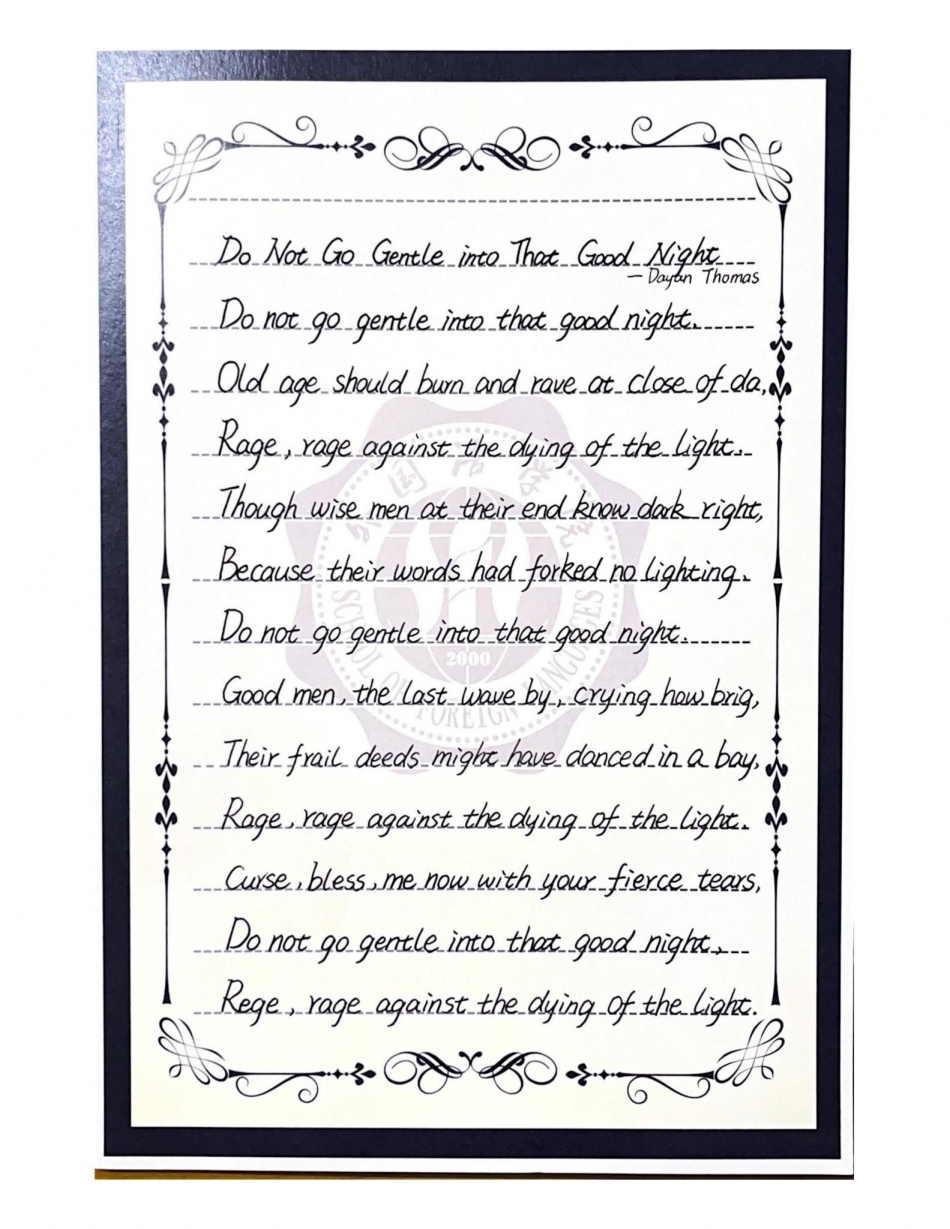 Do Not Go Gentle into That Good Night
— Daytan Thomas
Do not go gentle into that good night.
Old age should burn and rave at close of da,
Rage, rage against the dying of the light.
Though wise men at their end know dark right,
Because their words had forked no lighting.
Do not go gentle into that good night.
Good men, the last wave by, crying how brig,
Their frail deeds might have danced in a bay,
Rage, rage against the dying of the light.
Curse, bless, me now with your fierce tears,
Do not go gentle into that good night,
Rege, rage against the dying of the light.
外国语学
2000
SCHOOL OF FOREIGN LANGUOGES